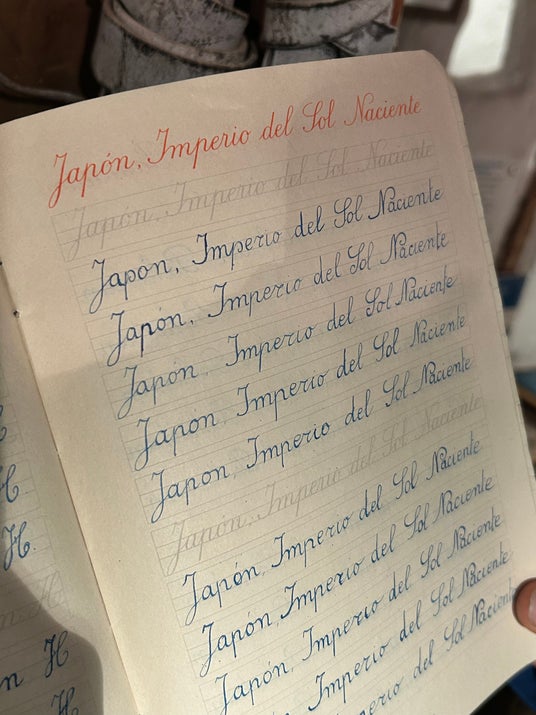 Japón, Imperio del Sol Naciente
Japón, Imperio del Sol Naciente
Japon, Imperio del Sol Naciente
Japón, Imperio del Sol Naciente
Japón, Imperio del Sol Naciente
Japón, Imperio del Sol Naciente
Japon, Imperio del Sol Naciente
Japón, Imperio del Sol Naciente
Japón, Imperio del Sol Naciente
Japón, Imperio del Sol Naciente
Japón, Imperio del Sol Naciente
Imperio del Sol Naciente
perio del Sol Naciente
H
H.
H
n H
H